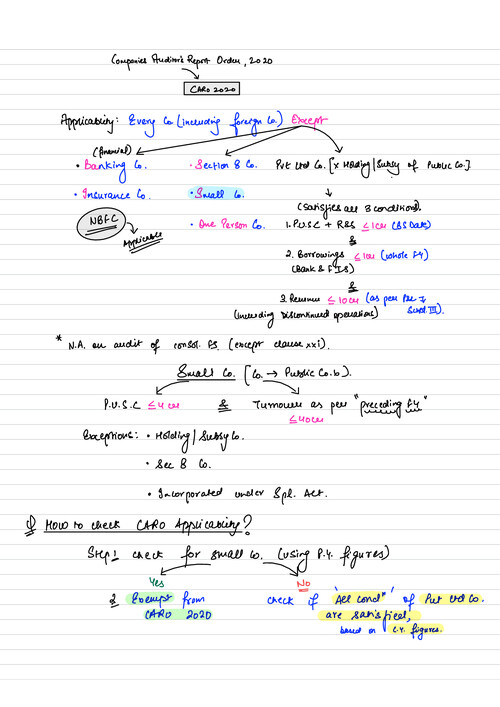 Companies Auditor's Report Order, 2020
CARO 2020
Applicability: Every Co (including foreign Co.) Except
(financial)
• Banking Co. • Section 8 Co. Pvt Ltd Co. [x Holding/Subsy of Public Co.].
• Insurance Co. • Small Co. (Satisfies all 3 conditions).
NBFC Applicable • One Person Co. 1. P.U.S.C + R&S ≤ 1cr (BS Date)
&
2. Borrowings ≤ 1cr (whole FY)
(Bank & F.I.S)
&
3. Revenue ≤ 10cr (as per Per I Sced. III).
(including Discontinued operations)
* N.A. on audit of consol. FS. (except clause xxi).
Small Co. (Co. → Public Co. is).
P.U.S.C ≤ 4 cr & Turnover as per "preceding FY"
≤ 40cr
Exceptions: • Holding/Subsy Co.
• Sec 8 Co.
• Incorporated under Spl. Act.
Q How to check CARO Applicability?
Step 1 check for small Co. (using P.Y. figures)
Yes No
2 Exempt from check if 'All condn' of Pvt Ltd Co.
CARO 2020 are satisfied,
based on C.Y. figures.